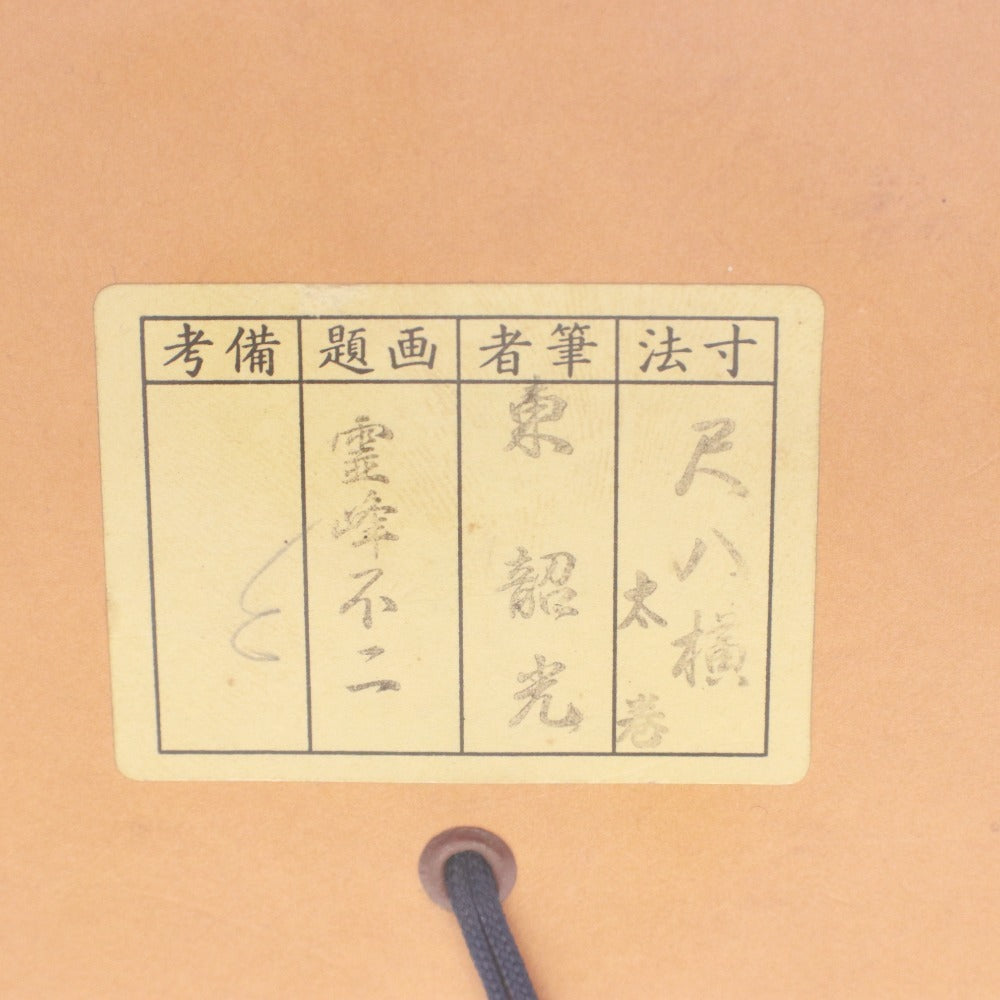 寸法
尺八横
太巻
筆者
東韶光
画題
霊峰不二
備考